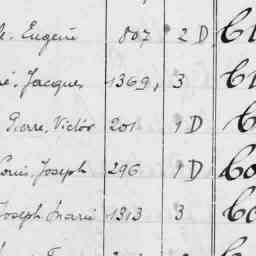 Eugène 807 2 D Cl
Jacques 1369, 3 Cl
Pierre, Victor 201 1 D
Louis, Joseph 296 1 D Co
Joseph Marie 1313 3 Co